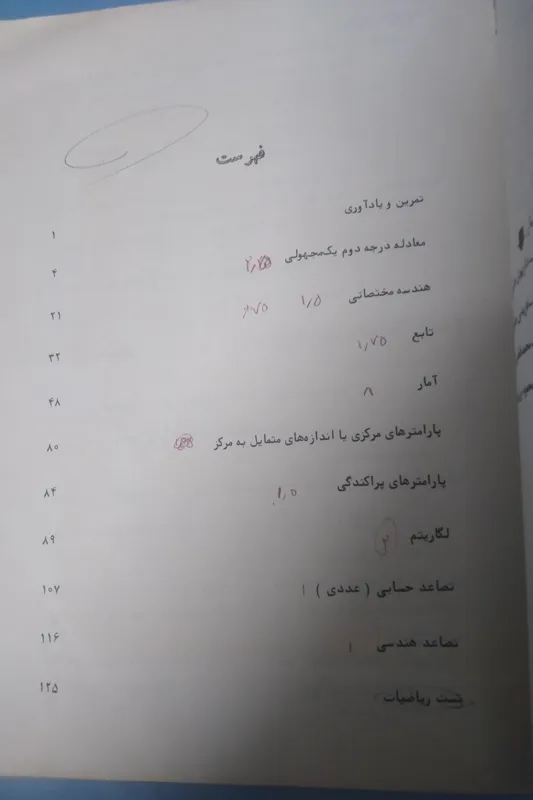 فهرست
تمرین و یادآوری ۱
معادله درجه دوم یک‌مجهولی ۴
هندسه مختصاتی ۱/۵ ۲۱
تابع ۱/۷۵ ۳۲
آمار ۴۸
پارامترهای مرکزی یا اندازه‌های متمایل به مرکز ۸۰
پارامترهای پراکندگی ۱/۵ ۸۴
لگاریتم ۲ ۸۹
تصاعد حسابی ( عددی ) ۱ ۱۰۷
تصاعد هندسی ۱ ۱۱۶
تست ریاضیات ۱۲۵